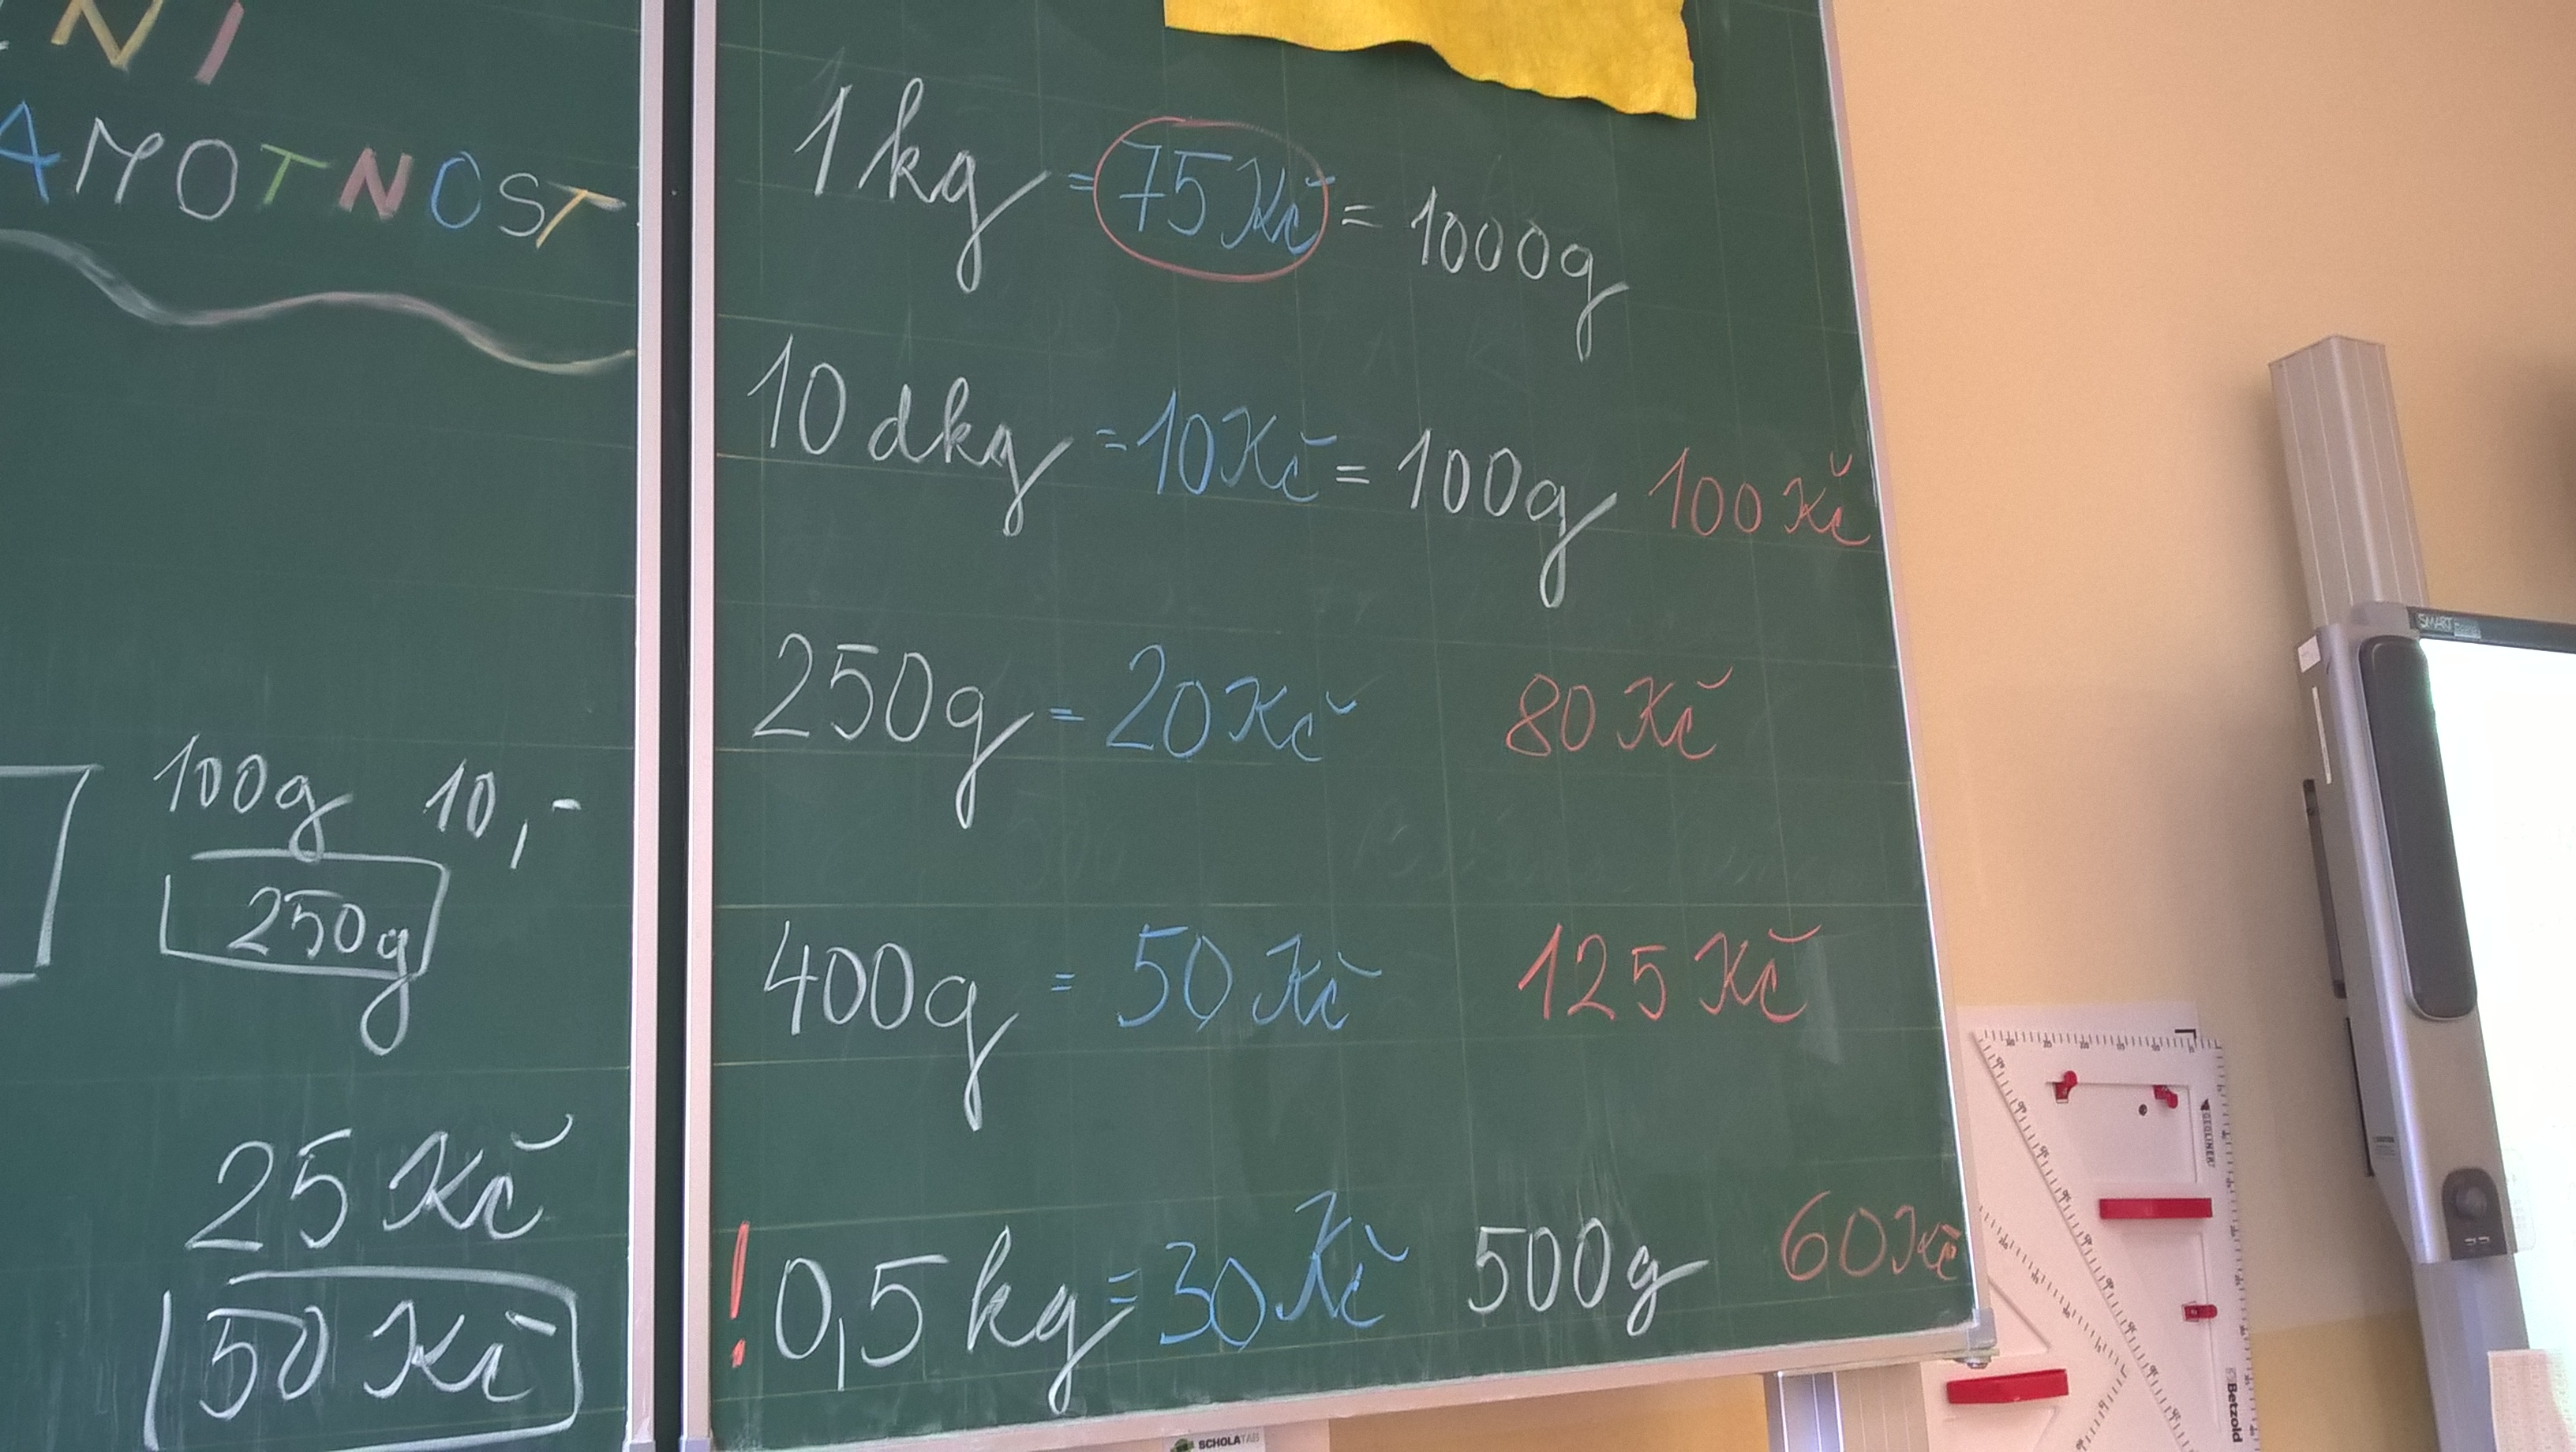 NÍ
AMOTNOST
100g 10,-
250g
25 Kč
50 Kč
1 kg = 75 Kč = 1000g
10 dkg = 10 Kč = 100g 100 Kč
250g = 20 Kč 80 Kč
400g = 50 Kč 125 Kč
! 0,5 kg = 30 Kč 500g 60 Kč
SMART
Betzold
SCHOLATAB